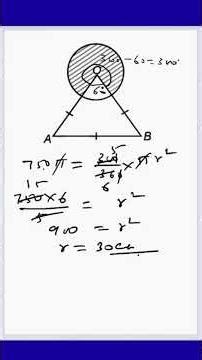 360-60=300°
O
60
A B
750π = 300/360 × π r²
5
6
15
750×6/5 = r²
900 = r²
r = 30cm